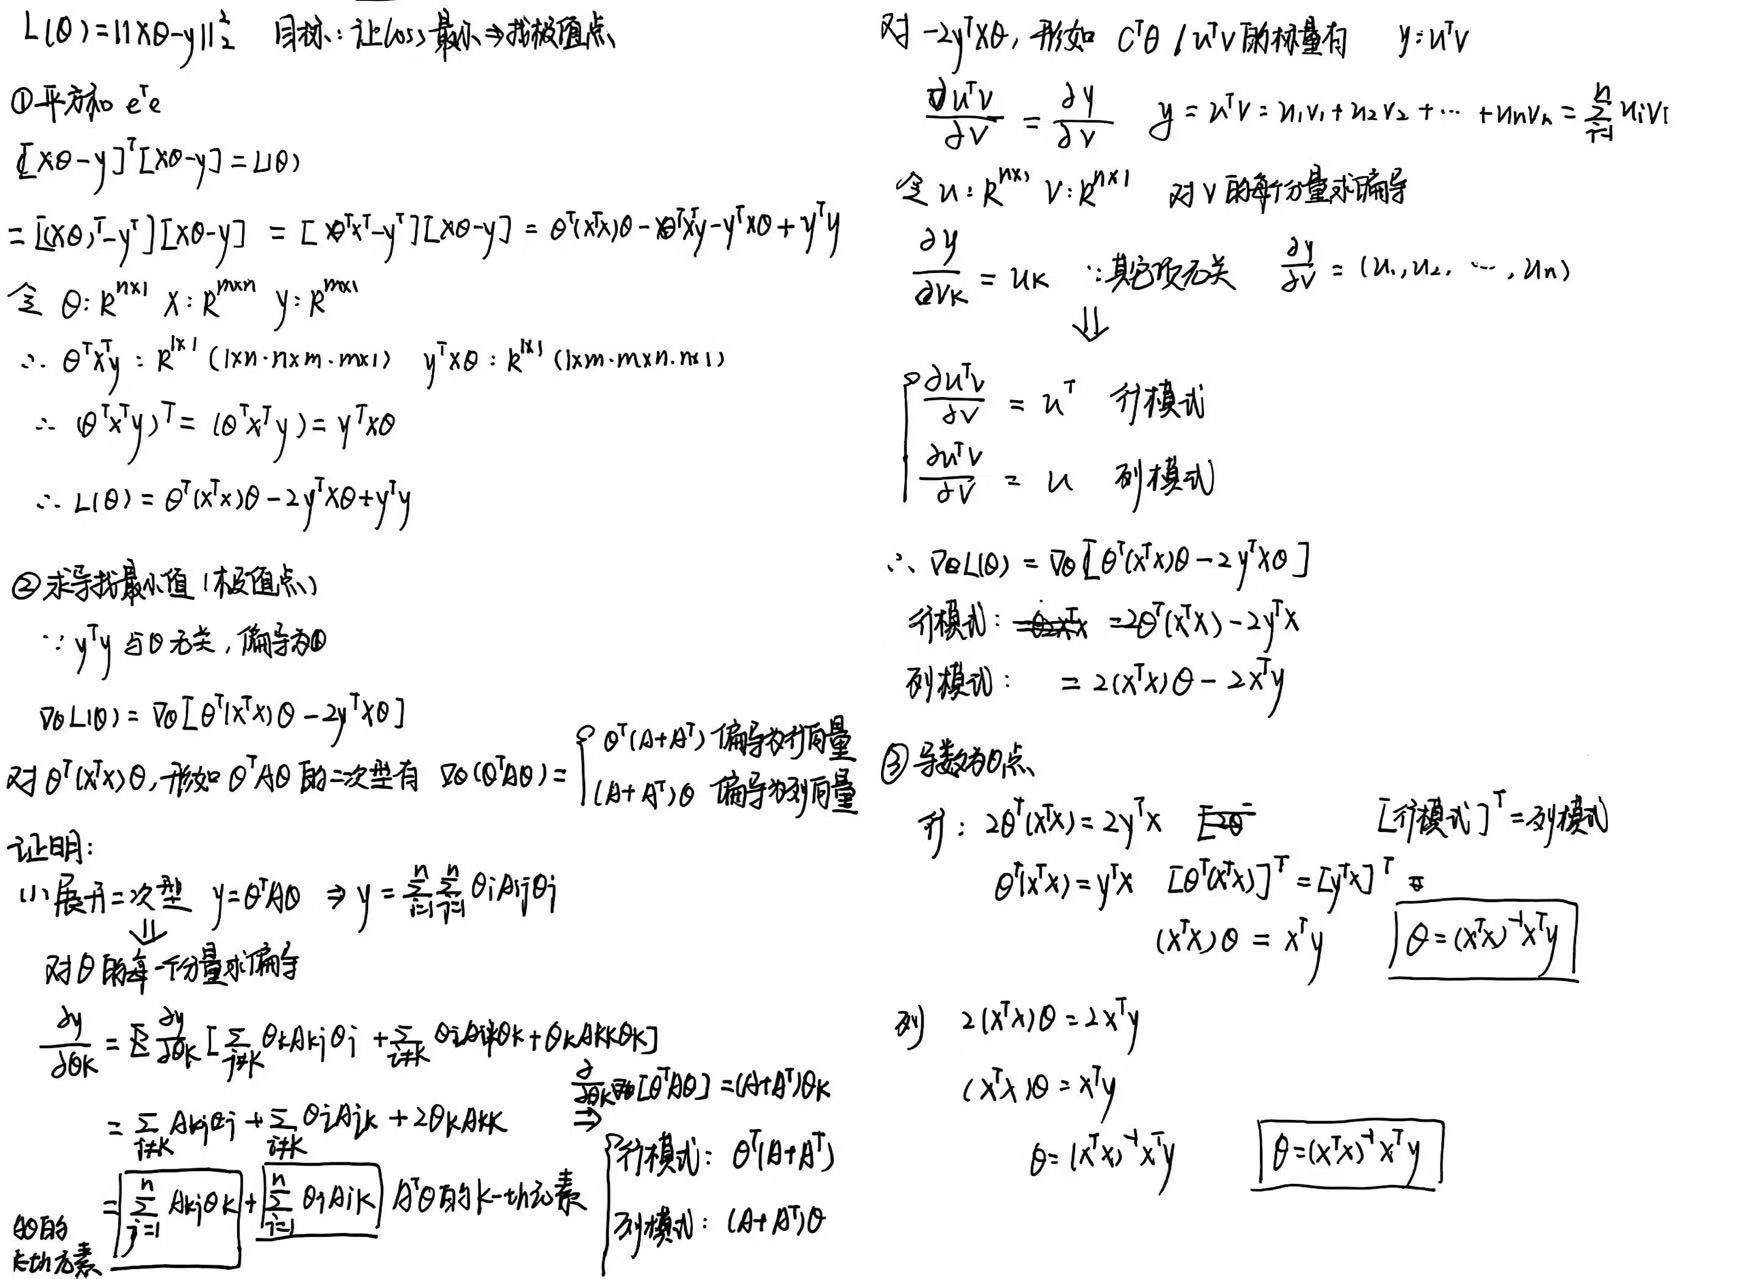 L(θ)=||Xθ-y||₂² 目标:让loss最小⇒找极值点
①平方和 eᵀe
[Xθ-y]ᵀ[Xθ-y]=L(θ)
=[(Xθ)ᵀ-yᵀ][Xθ-y] = [θᵀXᵀ-yᵀ][Xθ-y] = θᵀ(XᵀX)θ-θᵀXᵀy-yᵀXθ+yᵀy
令 θ:Rⁿˣ¹ X:Rᵐˣⁿ y:Rᵐˣ¹
∴ θᵀXᵀy:R¹ˣ¹ (1×n·n×m·m×1) yᵀXθ:R¹ˣ¹ (1×m·m×n·n×1)
∴ (θᵀXᵀy)ᵀ=(θᵀXᵀy)=yᵀXθ
∴ L(θ)=θᵀ(XᵀX)θ-2yᵀXθ+yᵀy
②求导找最小值(极值点)
∵ yᵀy与θ无关,偏导为0
∇θL(θ)=∇θ[θᵀ(XᵀX)θ-2yᵀXθ]
对θᵀ(XᵀX)θ,形如θᵀAθ的二次型有 ∇θ(θᵀAθ)={
θᵀ(A+Aᵀ) 偏导为行向量
(A+Aᵀ)θ 偏导为列向量
证明:
(1)展开二次型 y=θᵀAθ ⇒ y=∑ⁿᵢ₌₁∑ⁿⱼ₌₁θᵢAᵢⱼθⱼ
⇓
对θ的每一个分量求偏导
∂y/∂θk = ∂y/∂θk[∑j≠k θkAkjθj+∑i≠k θiAikθk+θkAkkθk]
=∑j≠k Akjθj+∑i≠k θiAik+2θkAkk
=∑ⁿⱼ₌₁Akjθk+∑ⁿᵢ₌₁θiAik Aᵀθ的k-th元素
Aθ的
k-th元素
⇒ ∂/∂θk[θᵀAθ]=(A+Aᵀ)θk
行模式:θᵀ(A+Aᵀ)
列模式:(A+Aᵀ)θ
对-2yᵀXθ,形如 Cᵀθ/uᵀv的标量有 y=uᵀv
∂uᵀv/∂v=∂y/∂v y=uᵀv=u₁v₁+u₂v₂+⋯+uₙvₙ=∑ⁿᵢ₌₁uᵢvᵢ
令u:Rⁿˣ¹ v:Rⁿˣ¹ 对v的每个分量求偏导
∂y/∂vk=uk ∵其它项无关 ∂y/∂v=(u₁,u₂,⋯,uₙ)
⇓
∂uᵀv/∂v=uᵀ 行模式
∂uᵀv/∂v=u 列模式
∴ ∇θL(θ)=∇θ[θᵀ(XᵀX)θ-2yᵀXθ]
行模式: =2θᵀ(XᵀX)-2yᵀX
列模式: =2(XᵀX)θ-2Xᵀy
③导数为0点
行:2θᵀ(XᵀX)=2yᵀX [行模式]ᵀ=列模式
θᵀ(XᵀX)=yᵀX [θᵀ(XᵀX)]ᵀ=[yᵀX]ᵀ
(XᵀX)θ=Xᵀy θ=(XᵀX)⁻¹Xᵀy
列 2(XᵀX)θ=2Xᵀy
(XᵀX)θ=Xᵀy
θ=(XᵀX)⁻¹Xᵀy θ=(XᵀX)⁻¹Xᵀy